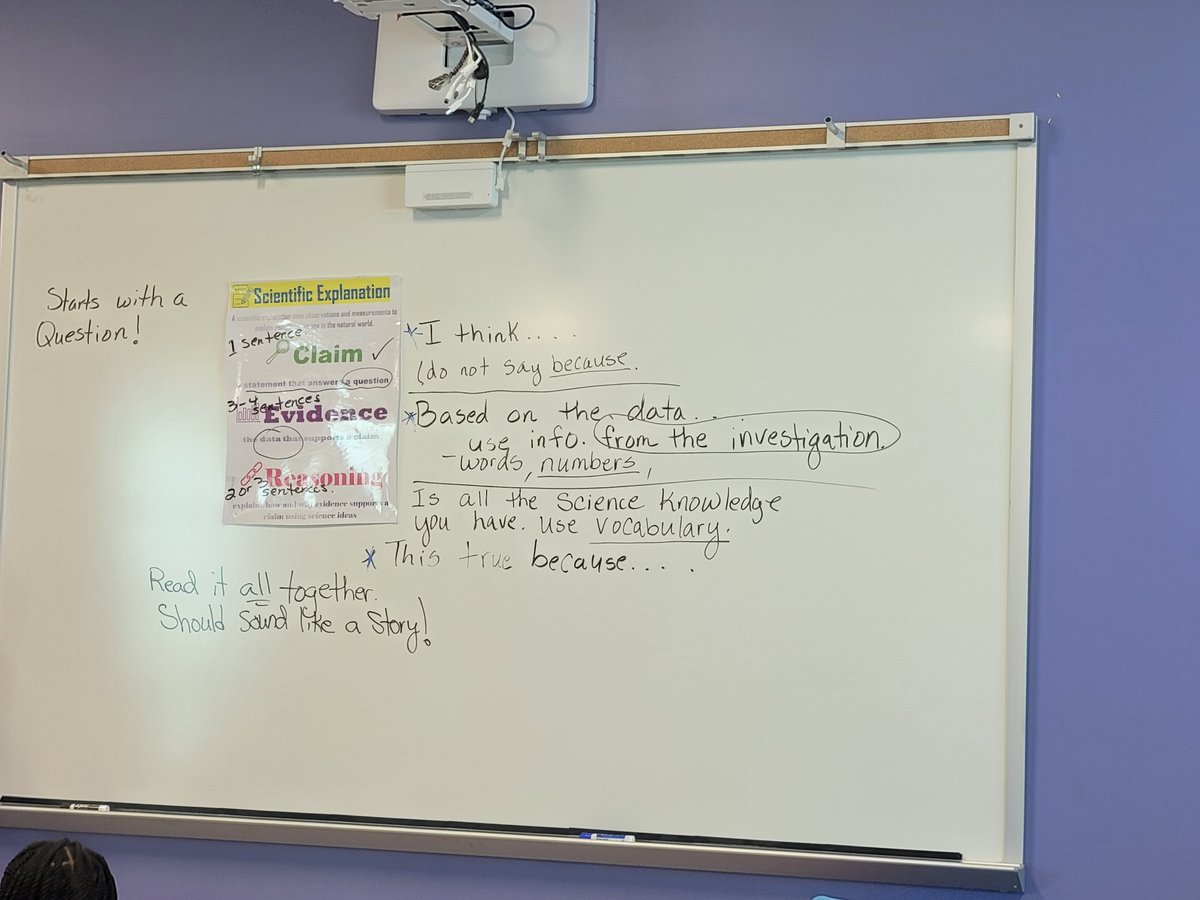 Starts with a
Question!
Scientific Explanation
A scientific explanation uses observations and measurements to
explain in the natural world.
1 sentence
Claim ✓
statement that answer a question
3-4 sentences
Evidence
the data that supports a claim
Reasoning
2 or 3 sentences.
explains how and why evidence supports a
claim using science ideas
*-I think....
(do not say because.
*Based on the data...
use info. from the investigation.
-words, numbers,
Is all the Science Knowledge
you have. Use vocabulary.
* This true because.....
Read it all together.
Should sound like a Story!